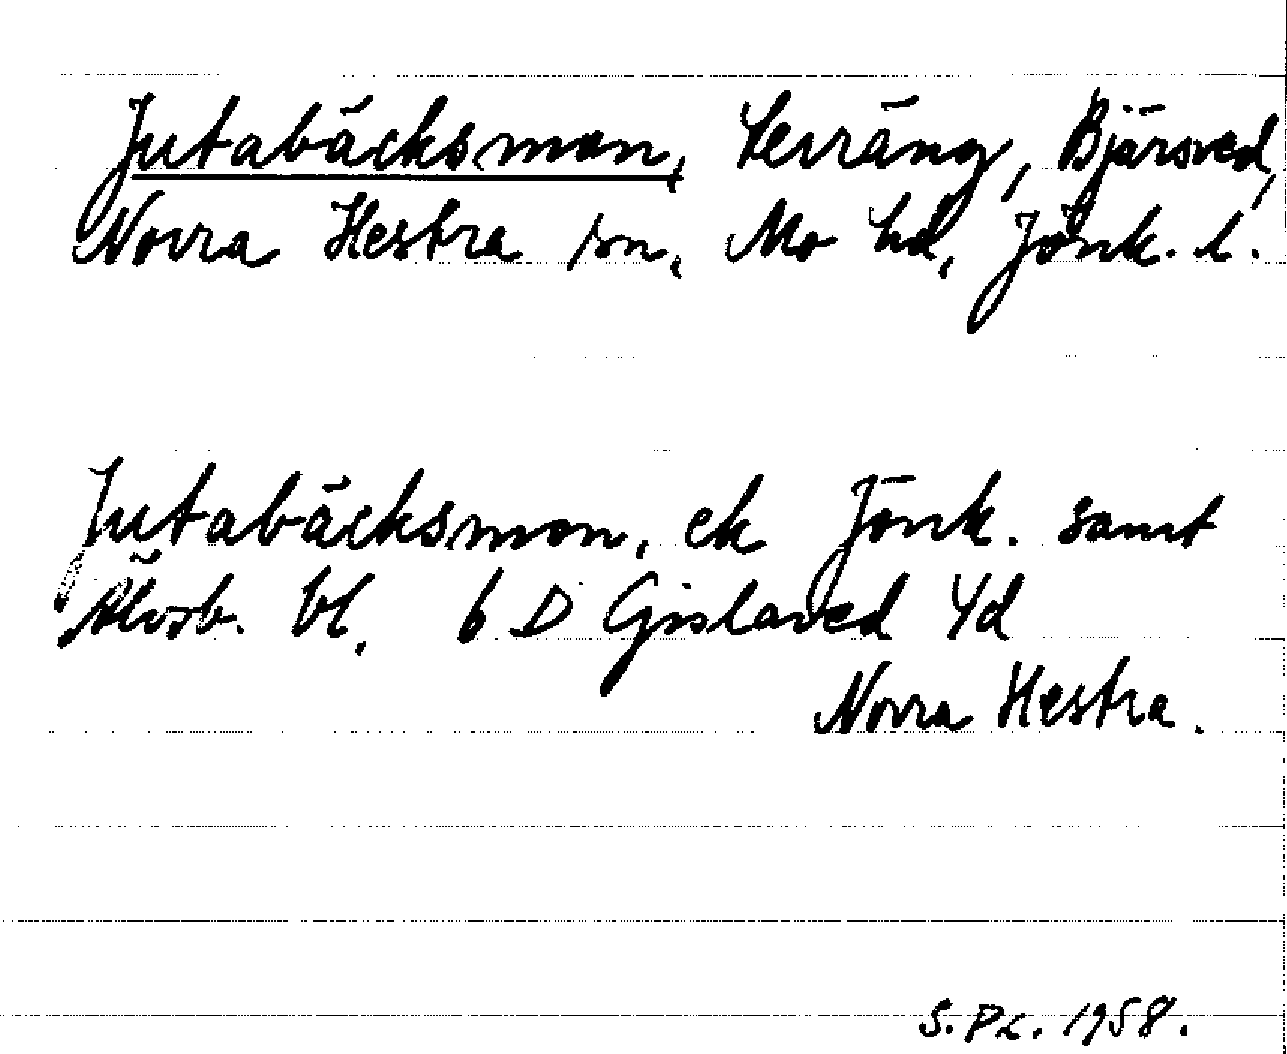 Jutabäcksmon, Terräng, Bjärsved,
Norra Hestra sn, Mo hd, Jönk. l.
Jutabäcksmon, ek Jönk. samt
Älvsb. bl. 6 D Gislaved 4d
Norra Hestra.
S.Pz. 1958.